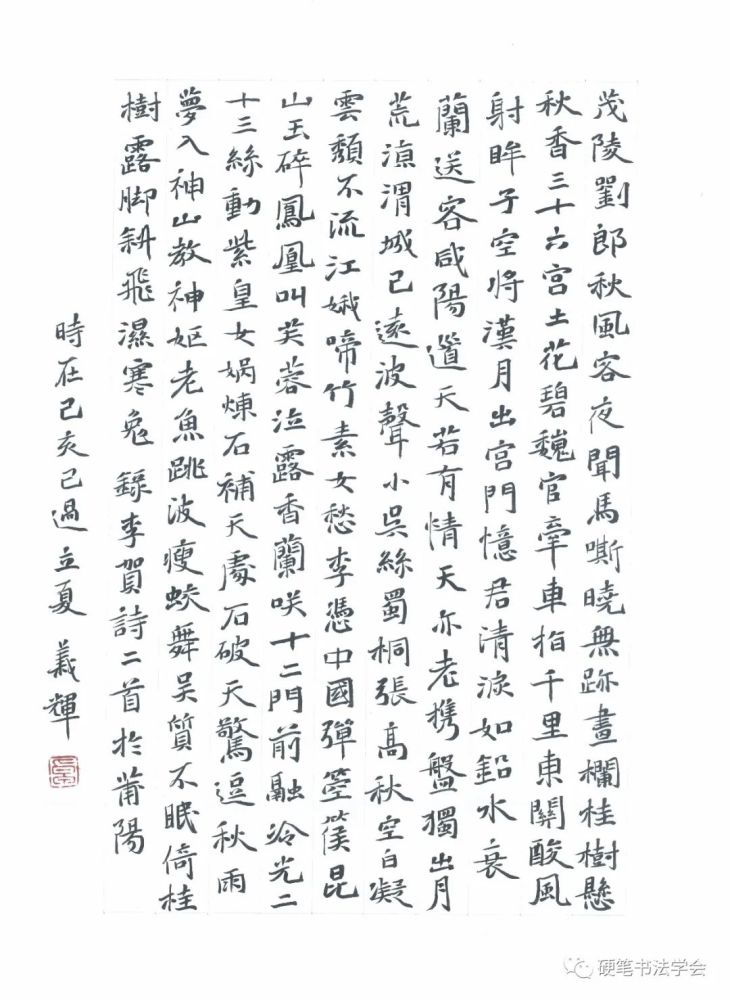 茂陵劉郎秋風客夜聞馬嘶曉無跡畫欄桂樹懸
秋香三十六宮土花碧魏官牽車指千里東關酸風
射眸子空將漢月出宮門憶君清淚如鉛水衰
蘭送客咸陽道天若有情天亦老携盤獨出月
荒涼渭城已遠波聲小吳絲蜀桐張高秋空白凝
雲頹不流江娥啼竹素女愁李憑中國彈箜篌昆
山玉碎鳳凰叫芙蓉泣露香蘭咲十二門前融冷光二
十三絲動紫皇女媧煉石補天處石破天驚逗秋雨
夢入神山教神嫗老魚跳波瘦蛟舞吳質不眠倚桂
樹露脚斜飛濕寒兔 錄李賀詩二首於莆陽
時在己亥已過立夏 義輝
硬笔书法学会